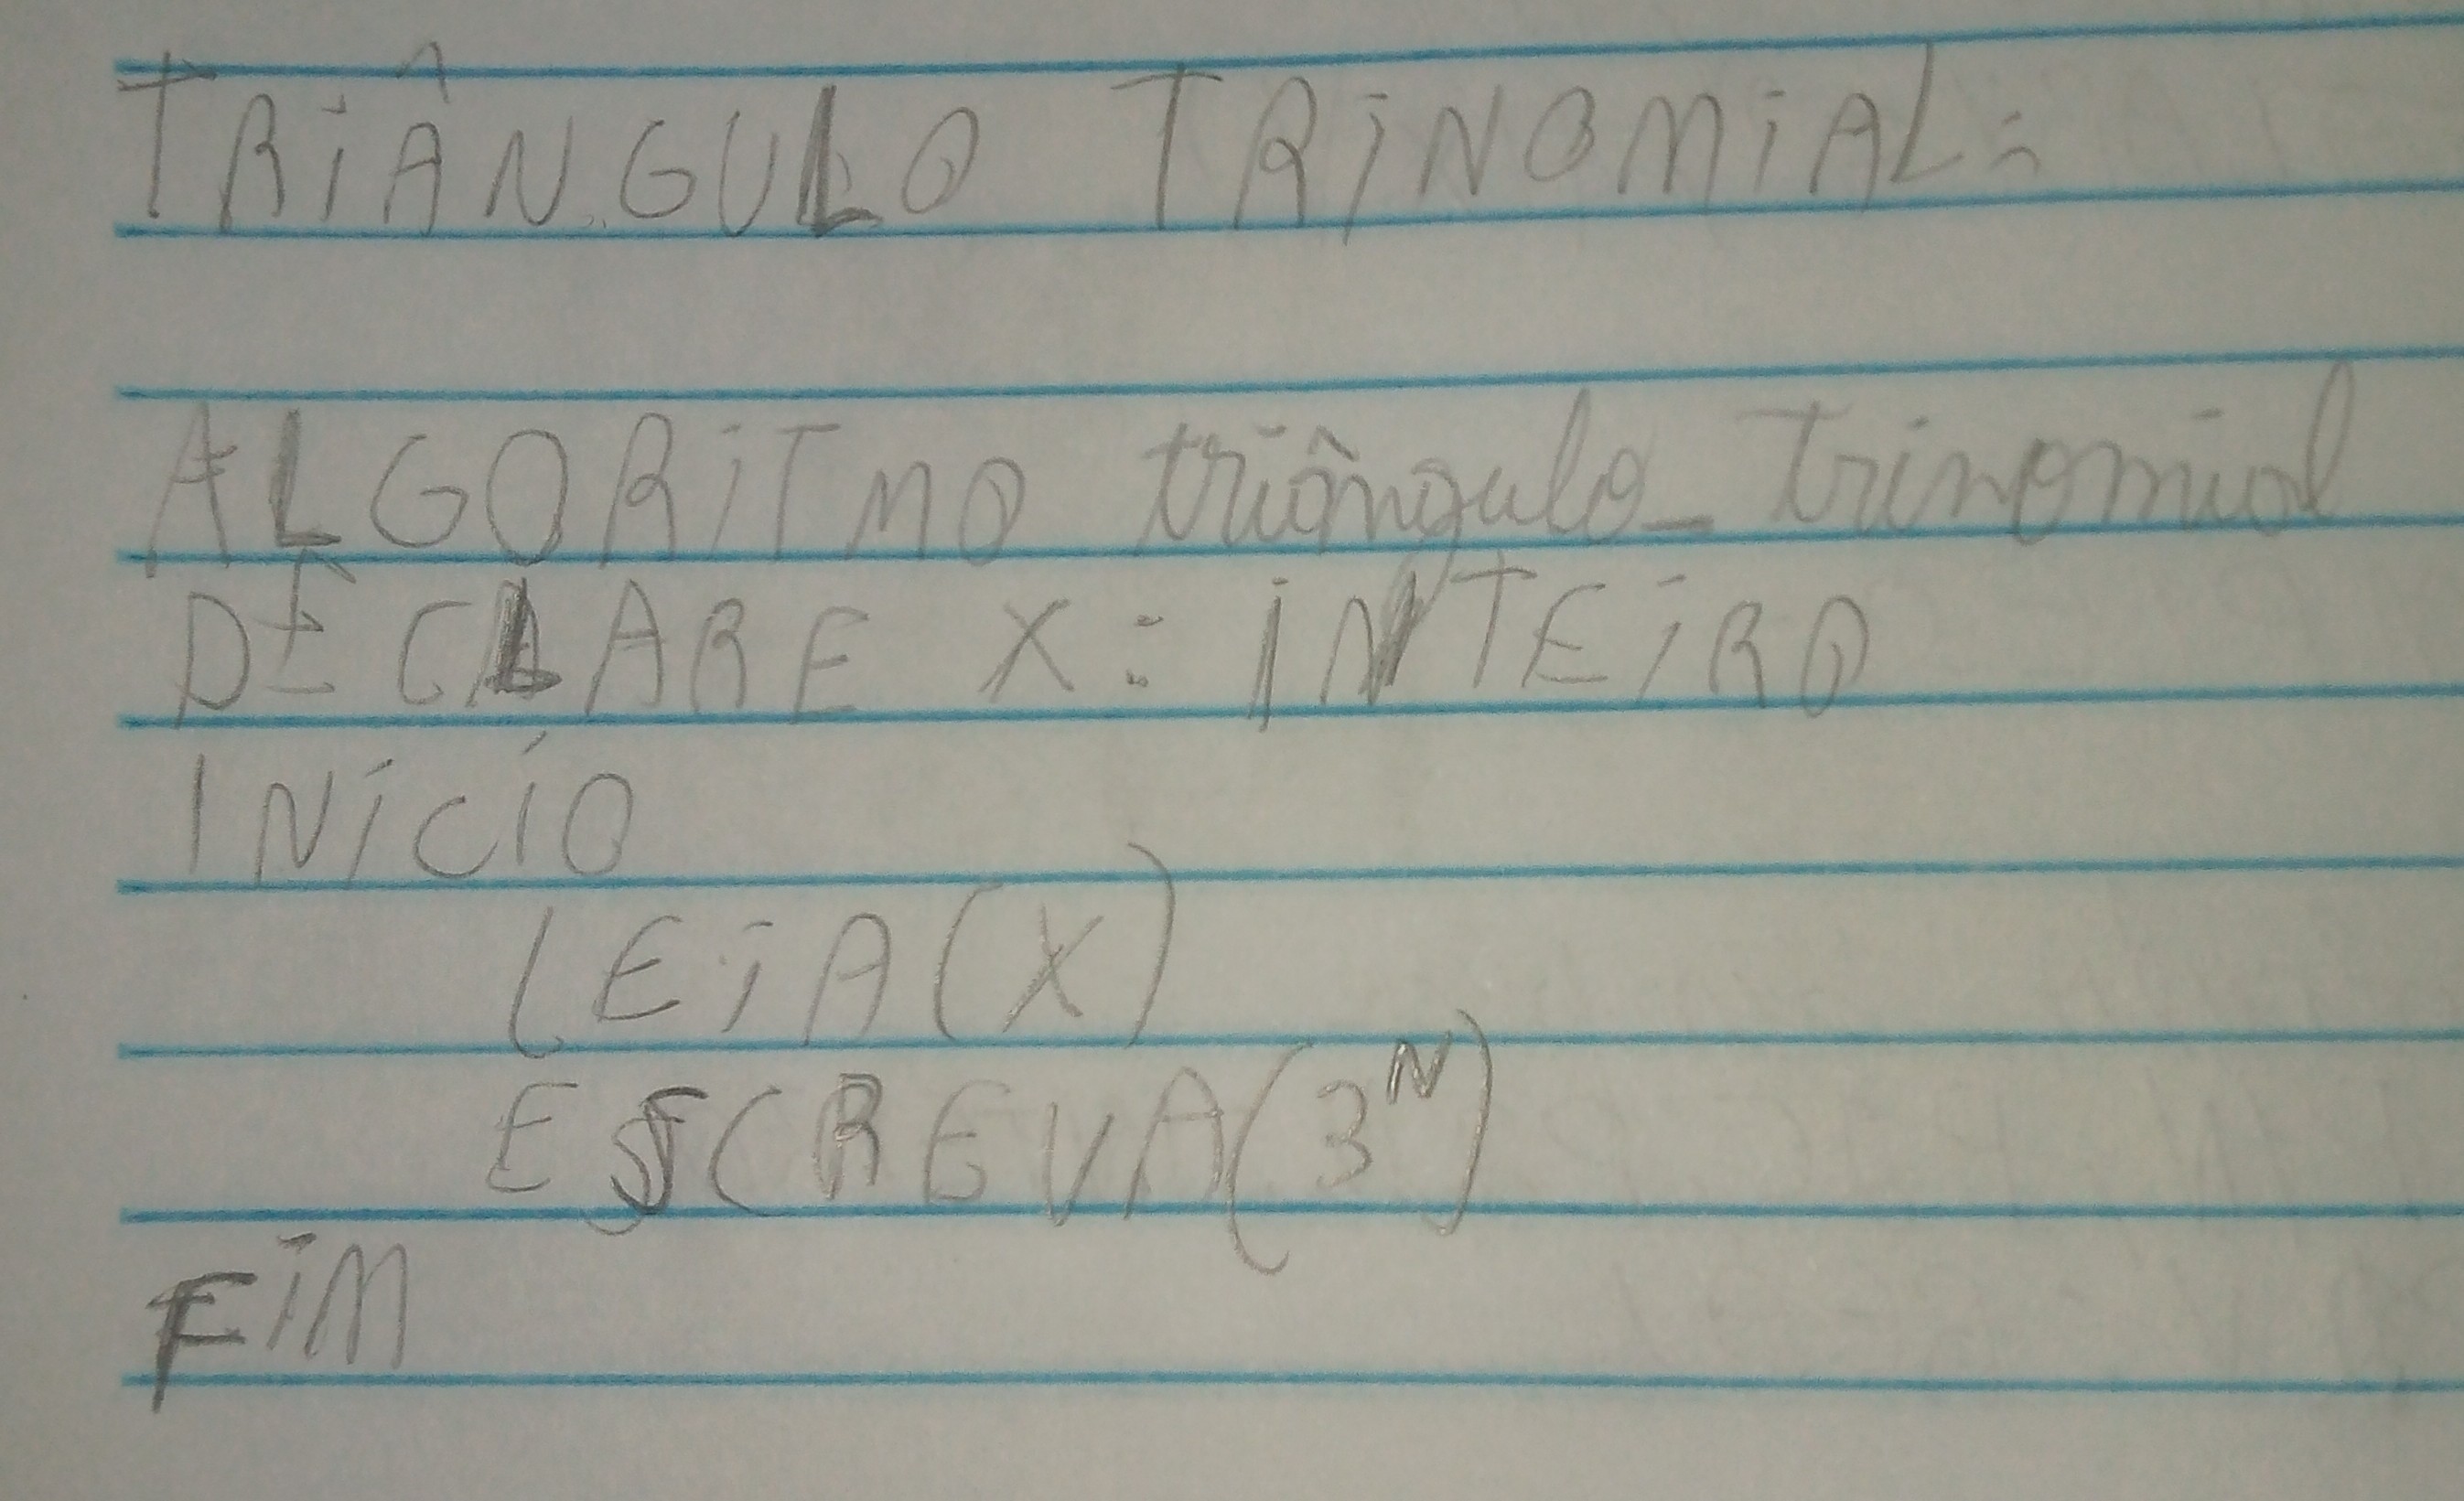 TRIÂNGULO TRINOMIAL:
ALGORITMO triângulo_trinomial
DECLARE X: INTEIRO
INICÍO
LEIA(X)
ESCREVA(3^N)
FIM